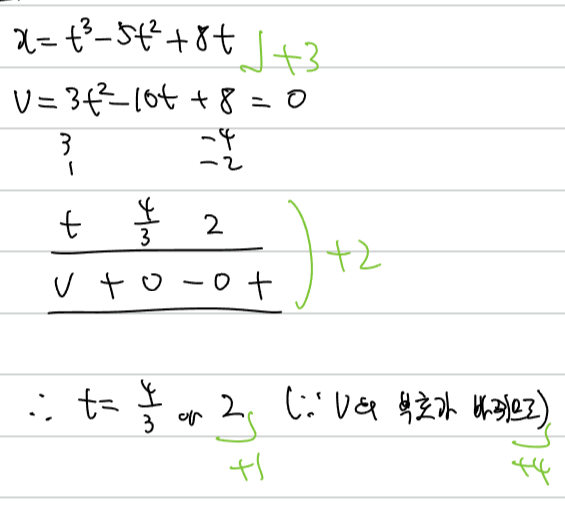 x = t³ - 5t² + 8t +3
v = 3t² - 10t + 8 = 0
3 -4
1 -2
t 4/3 2
v + 0 - 0 + +2
∴ t = 4/3 or 2 (∵ v의 부호가 바뀌므로)
+1 +4